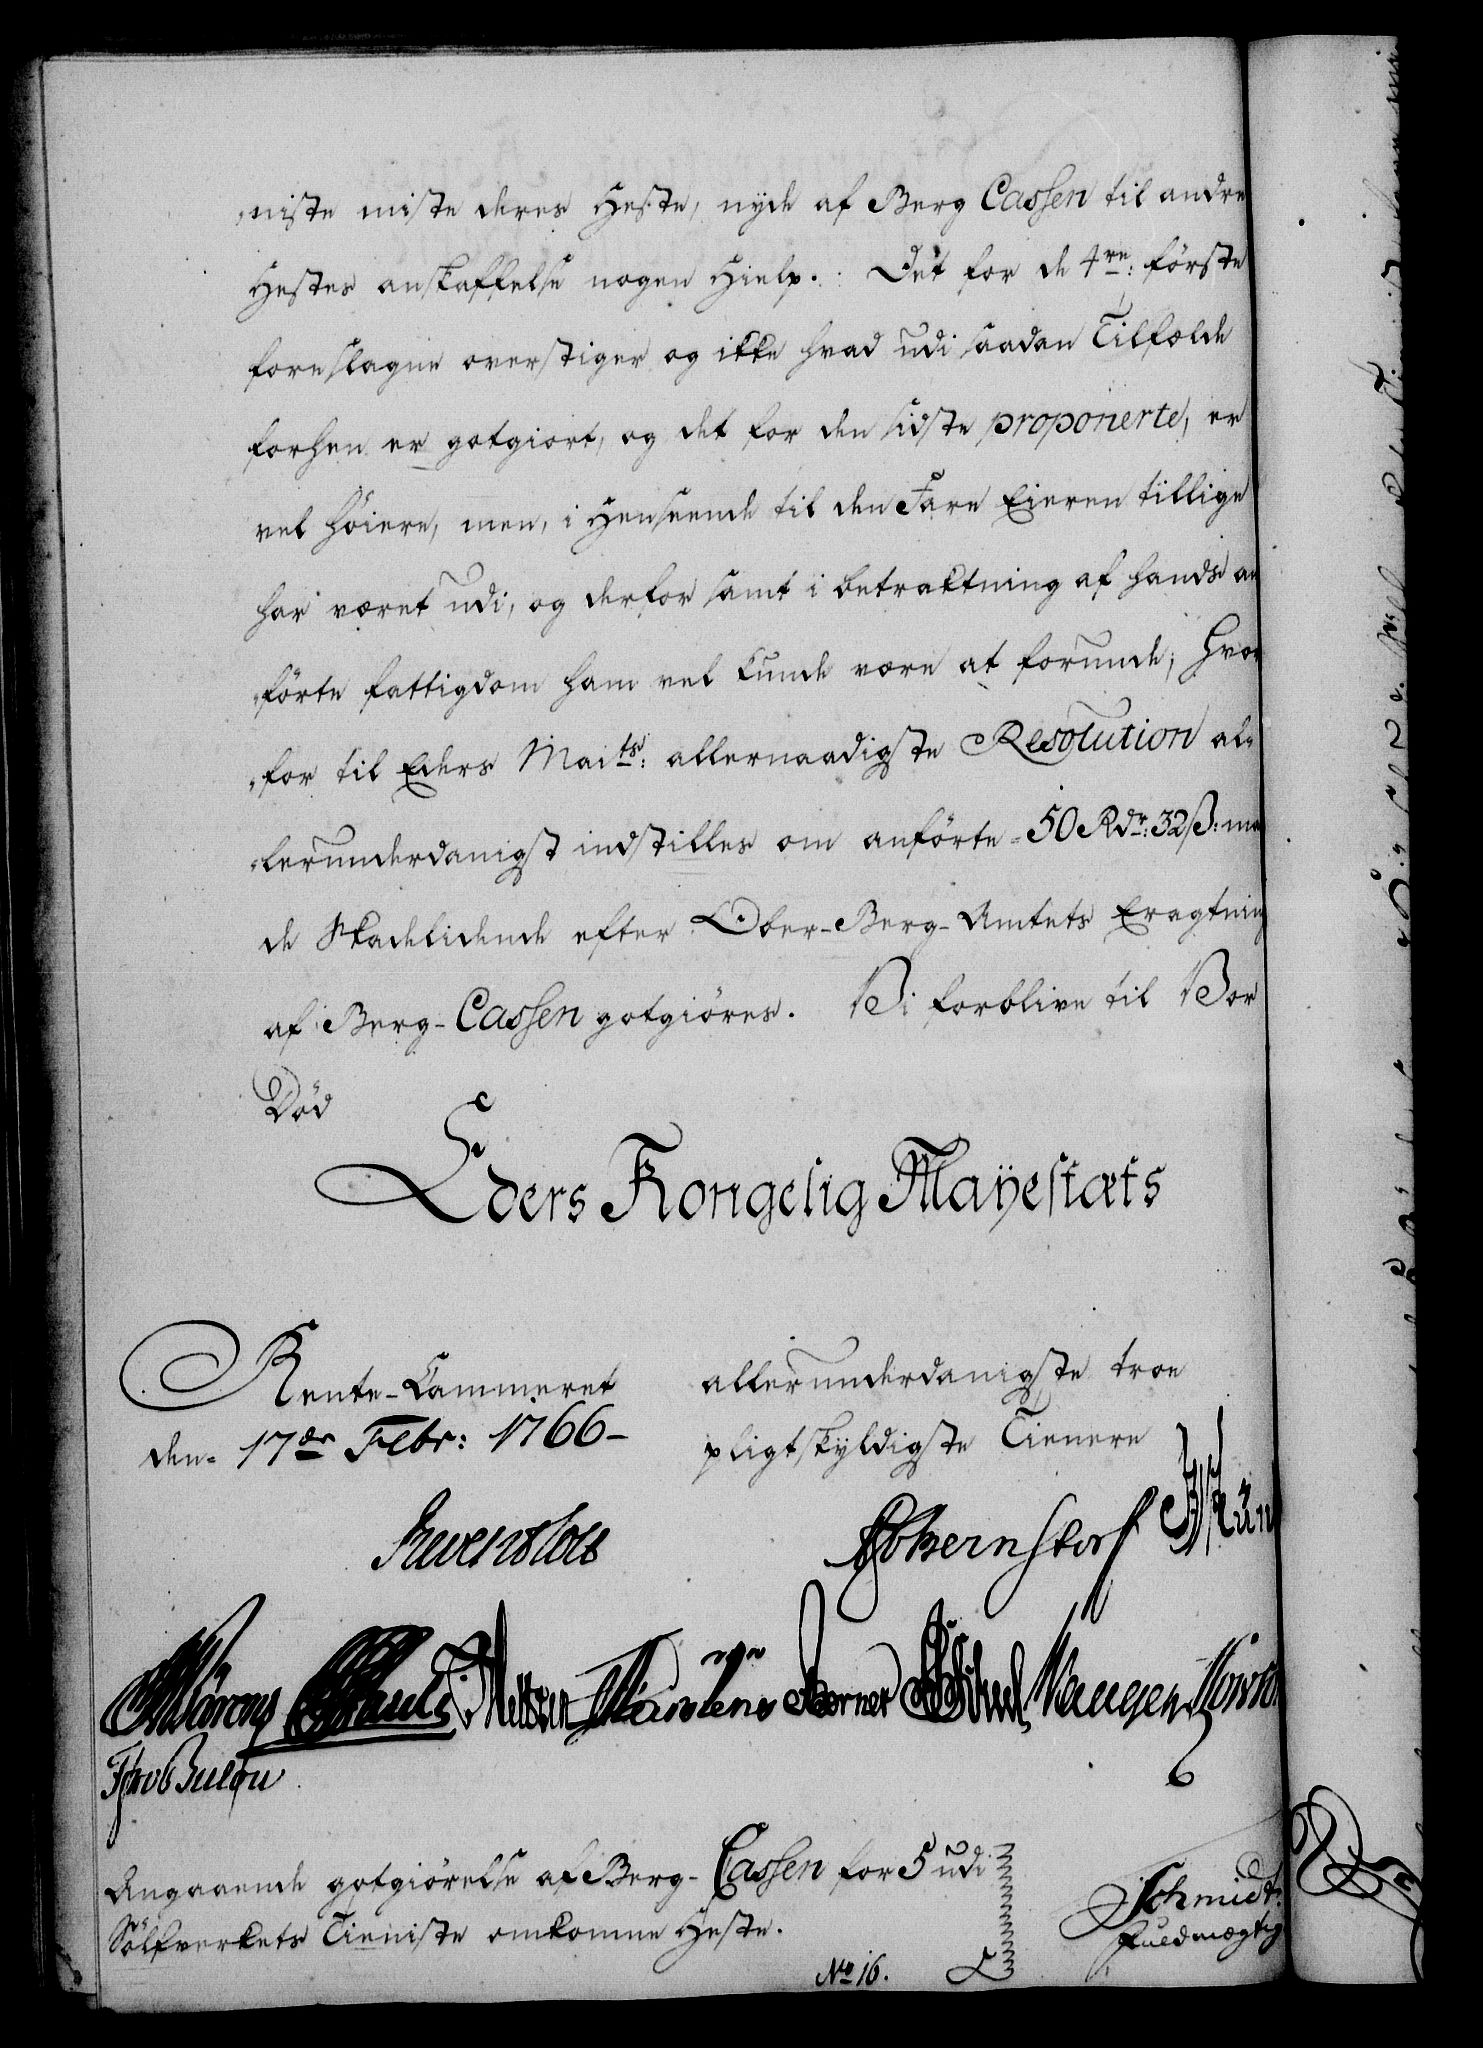 niste miste deres Heste, nyde af Berg Cassen til andre
Hestes anskaffelse nogen Hielp. Det for de 4re: förste
foreslagne overstiger og ikke hvad udi saadan Tilfælde
forhen er gotgiort, og det for den sidste proponerte, er
vel höiere, men, i Henseende til den Fare Eieren tillige
har været udi, og derfor samt i betraktning af hands an
förte fattigdom ham vel kunde være at forunde; Hvor
for til Eders Maits: allernaadigste Resolution al-
lerunderdanigst indstilles om anförte 50 Rdr: 32 ß:
de Skadelidende efter Ober-Berg-Amtets Eragtning
af Berg-Cassen gotgiöres. Vi forblive til Vor
Död
Eders Kongelig Mayestæts
Rente-Cammeret
den 17de Febr: 1766-
allerunderdanigste troe
pligtskyldigste Tienere
Reventlow
Schmidt
Fuldmægtig
Angaaende gotgiörelse af Berg-Cassen for 5 udi
Sölfverkets Tieniste omkomne Heste.
No 16.